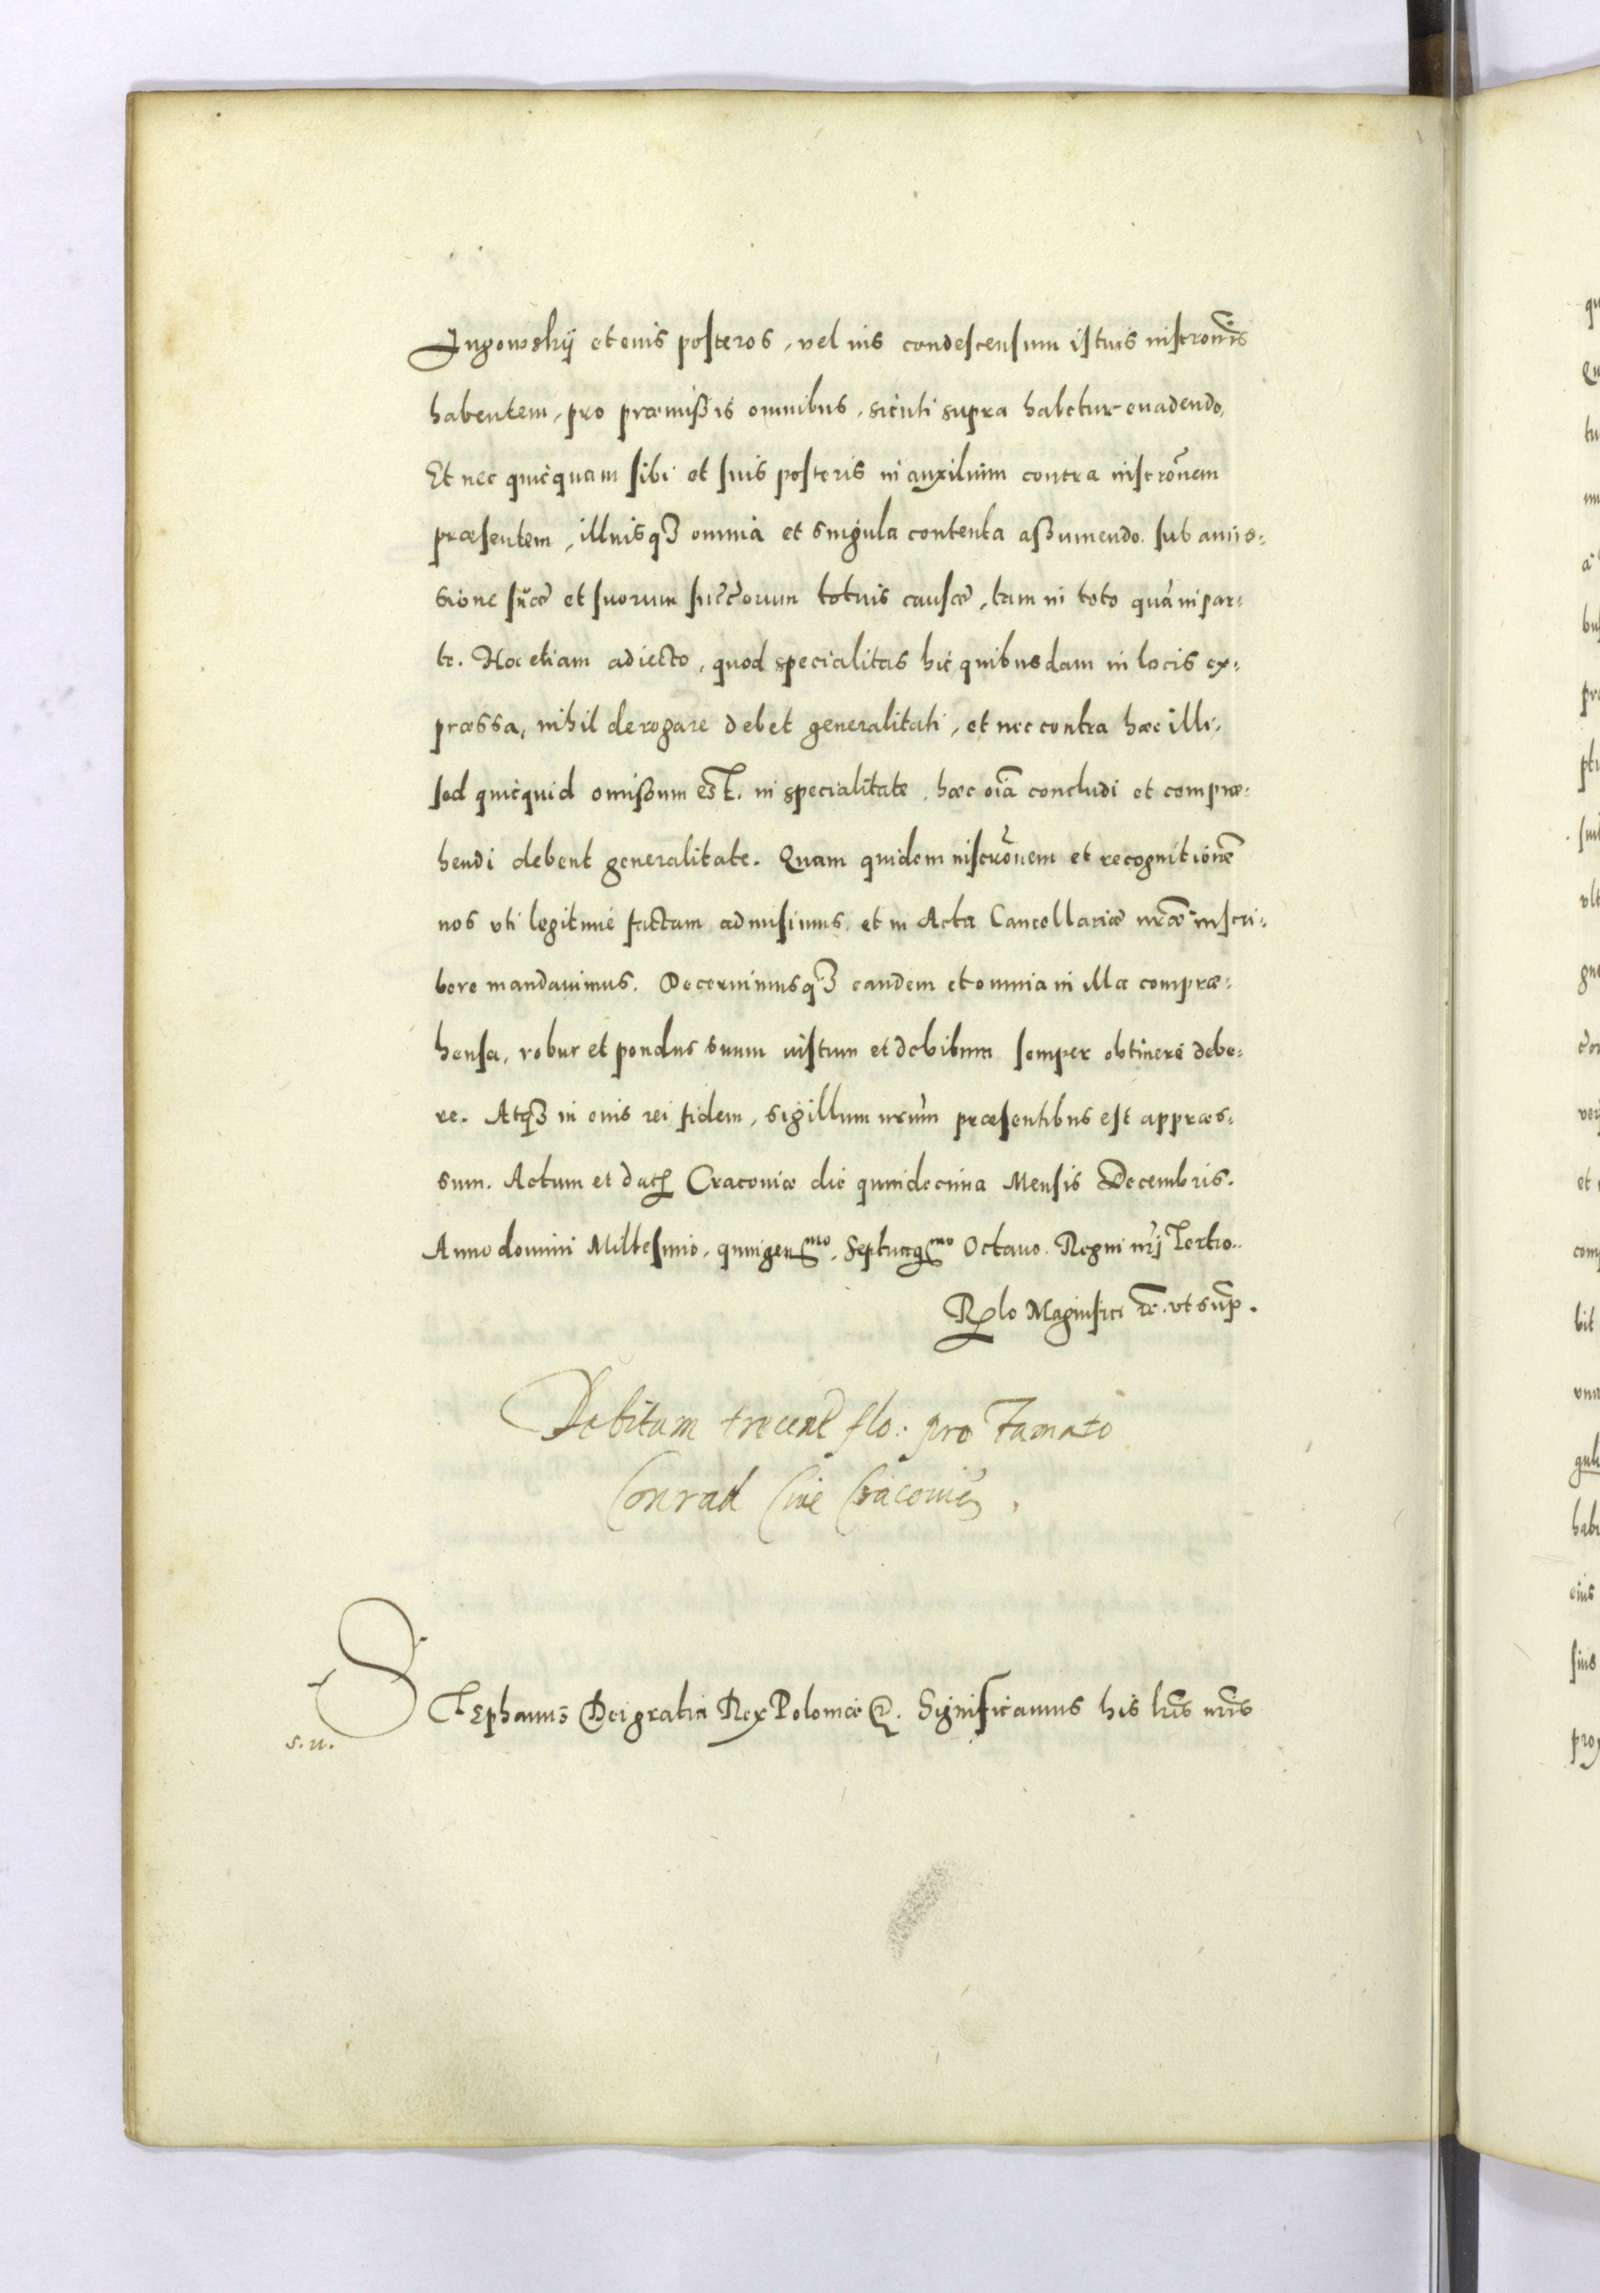 Jugowskij et eius posteros, vel ius condescensum istius inscrōnis
habentem, pro præmissis omnibus, sicuti supra habetur euadendo,
Et nec quicquam sibi et suis posteris in auxilium contra inscrōnem
præsentem, illiusqȝ omnia et singula contenta assumendo. sub amis=
sione suæ et suorum succ̄orum totius causæ, tam in toto quàm in par=
te. Hoc etiam adiecto, quod specialitas hic quibusdam in locis ex=
præssa, nihil derogare debet generalitati, et nec contra hæc illi,
sed quicquid omissum est. in specialitate, hæc oīa concludi et compræ=
hendi debent generalitate. Quam quidem inscrōnem et recognitionē
nos vti legitimè factam admisimus, et in Acta Cancellariæ nr̄æ inscri=
bere mandauimus. Decernimusqȝ eandem et omnia in illa compræ=
hensa, robur et pondus suum iustum et debitum semper obtinere debe=
re. Atqȝ in eius rei fidem, sigillum nr̄um præsentibus est appræs=
sum. Actum et dat Cracouiæ die quindecima Mensis Decembris.
Anno domini Millesimo, quingenᵐᵒ, Septuagᵐᵒ Octauo. Regni nr̄j Tertio.
Rlo Magnifici &c. vt sup̄.
Debitum trecent flo: pro Famato
Conrad Ciue Cracouieñ.
STephanus Dei gratia Rex Poloniæ &. Significamus his lr̄is nr̄is
s. n.